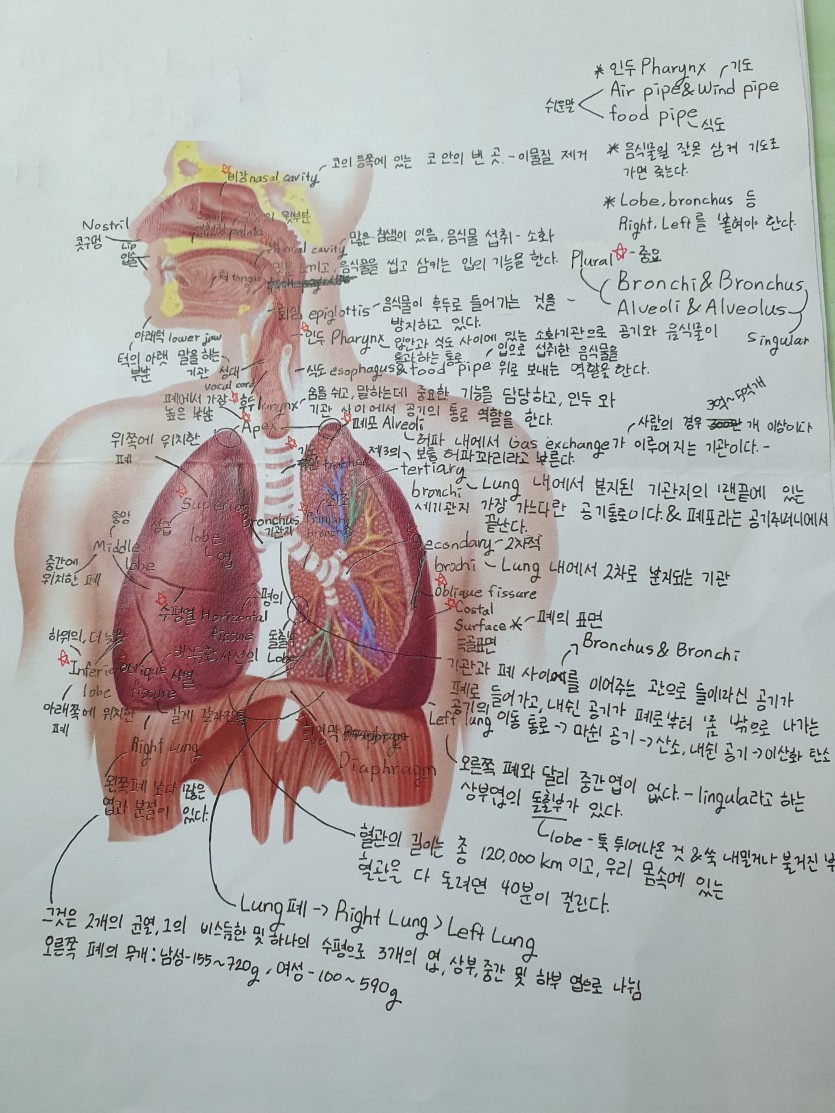 * 인두 Pharynx
기도
Air pipe & Wind pipe
쉬운말
food pipe
식도
* 음식물일 잘못 삼켜 기도로
가면 죽는다.
* Lobe, bronchus 등
Right, Left를 붙혀야 한다.
Plural - 중요
Bronchi & Bronchus
Alveoli & Alveolus
Singular
비강 nasal cavity
코의 등쪽에 있는 코 안의 빈 곳. - 이물질 제거
Nostril
콧구멍
Lip
입술
oral cavity
많은 침샘이 있음, 음식물 섭취 - 소화
tongue
음식물을 씹고 삼키는 입의 기능을 한다.
epiglottis - 음식물이 후두로 들어가는 것을
방지하고 있다.
인두 Pharynx
입안과 식도 사이에 있는 소화기관으로 공기와 음식물이
통과하는 통로
식도 esophagus & food pipe
입으로 섭취한 음식물을
위로 보내는 역할을 한다.
아래턱 lower jaw
턱의 아랫
부분
말을 하는
기관
성대
vocal cord
후두 larynx
숨을 쉬고, 말하는데 중요한 기능을 담당하고, 인두 와
기관 사이에서 공기의 통로 역할을 한다.
폐에서 가장
높은 부분
Apex
폐포 Alveoli
사람의 경우
개 이상이다
허파 내에서 Gas exchange가 이루어지는 기관이다. -
보통 허파꽈리라고 부른다.
위쪽에 위치한
폐
제3의
tertiary
bronchi
Lung 내에서 분지된 기관지의 맨끝에 있는
세기관지 가장 가느다란 공기통로이다. & 폐포라는 공기주머니에서
끝난다.
Superior
lobe
엽
중앙
Middle
lobe
중간에
위치한 폐
Bronchus
기관지
Primary
Bronchi
Secondary - 2차적
brochi - Lung 내에서 2차로 분지되는 기관
oblique fissure
Costal
Surface * - 폐의 표면
늑골표면
수평열 Horizontal
fissure
수평의
돌출부
Lobe
하위의,
Inferior
lobe
아래쪽에 위치한
폐
oblique
fissure
사열
비스듬한 사선의
길게 갈라진 틈
Bronchus & Bronchi
기관과 폐 사이에를 이어주는 관으로 들이마신 공기가
폐로 들어가고, 내쉰 공기가 폐로부터 몸 밖으로 나가는
공기의 이동 통로 -> 마쉰 공기 -> 산소, 내쉰 공기 -> 이산화 탄소
Left lung
오른쪽 폐와 달리 중간엽이 없다. - lingula라고 하는
상부엽의 돌출부가 있다.
lobe - 툭 튀어나온 것 & 쑥 내밀거나 불거진 부
Right Lung
왼쪽폐 보다 많은
엽과 분절이 있다.
횡격막
Diaphragm
혈관의 길이는 총 120,000 km 이고, 우리 몸속에 있는
혈관을 다 돌려면 40분이 걸린다.
Lung 폐 -> Right Lung > Left Lung
그것은 2개의 균열, 1의 비스듬한 및 하나의 수평으로 3개의 엽, 상부, 중간 및 하부 엽으로 나뉨
오른쪽 폐의 무개 : 남성 - 155 ~ 720g, 여성 - 100 ~ 590g